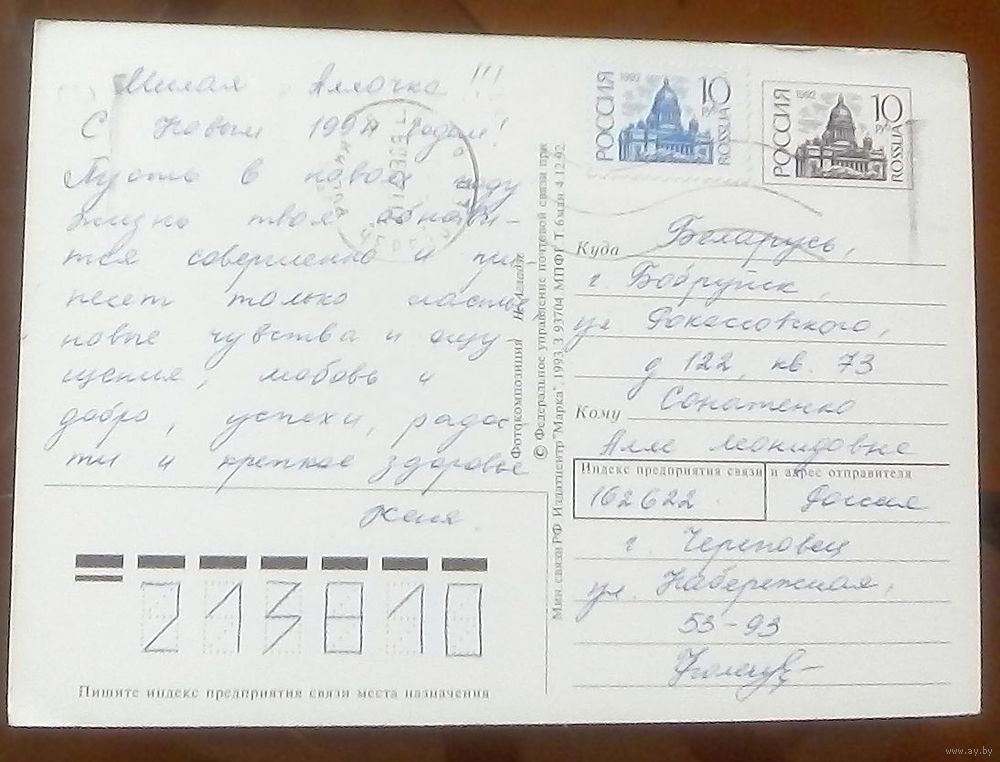 Милая Аллочка!!!
С Новым 1994 годом!
Пусть в новом году
жизнь твоя обнови-
тся совершенно и при
несет только счастье,
новые чувства и ощу
щения, любовь и
добро, успехи, радос
ти и крепкое здоровье
Женя.
213810
Пишите индекс предприятия связи места назначения
Фотокомпозиция
© Федеральное управление почтовой связи при
Мин. связи РФ Издатцентр "Марка", 1993. З 93704 МПФГ Т 6 млн 4.12.92
РОССИЯ 1992 10 ROSSIJA
РОССИЯ 1992 10 РУ ROSSIJA
Куда Беларусь,
г. Бобруйск,
ул Рокоссовского,
д 122, кв. 73
Кому Сонатенко
Алле Леонидовне
Индекс предприятия связи и адрес отправителя
162622 Россия
г. Череповец
ул. Набережная,
53-93
www.ay.by